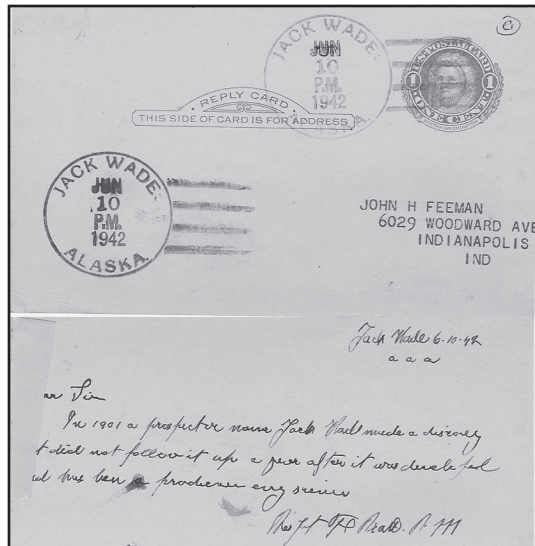 JACK WADE
JUN
10
P.M.
1942
ALASKA.
U.S. POSTAL CARD
1 1
ONE CENT
REPLY CARD
THIS SIDE OF CARD IS FOR ADDRESS
JACK WADE
JUN
10
P.M.
1942
ALASKA.
JOHN H FEEMAN
6029 WOODWARD AVE
INDIANAPOLIS
IND
Jack Wade 6-10-42
a a a
ar Sir
In 1901 a prospector name Jack Wade made a discovery
t did not follow it up a year after it was
has ben a producer
P. M